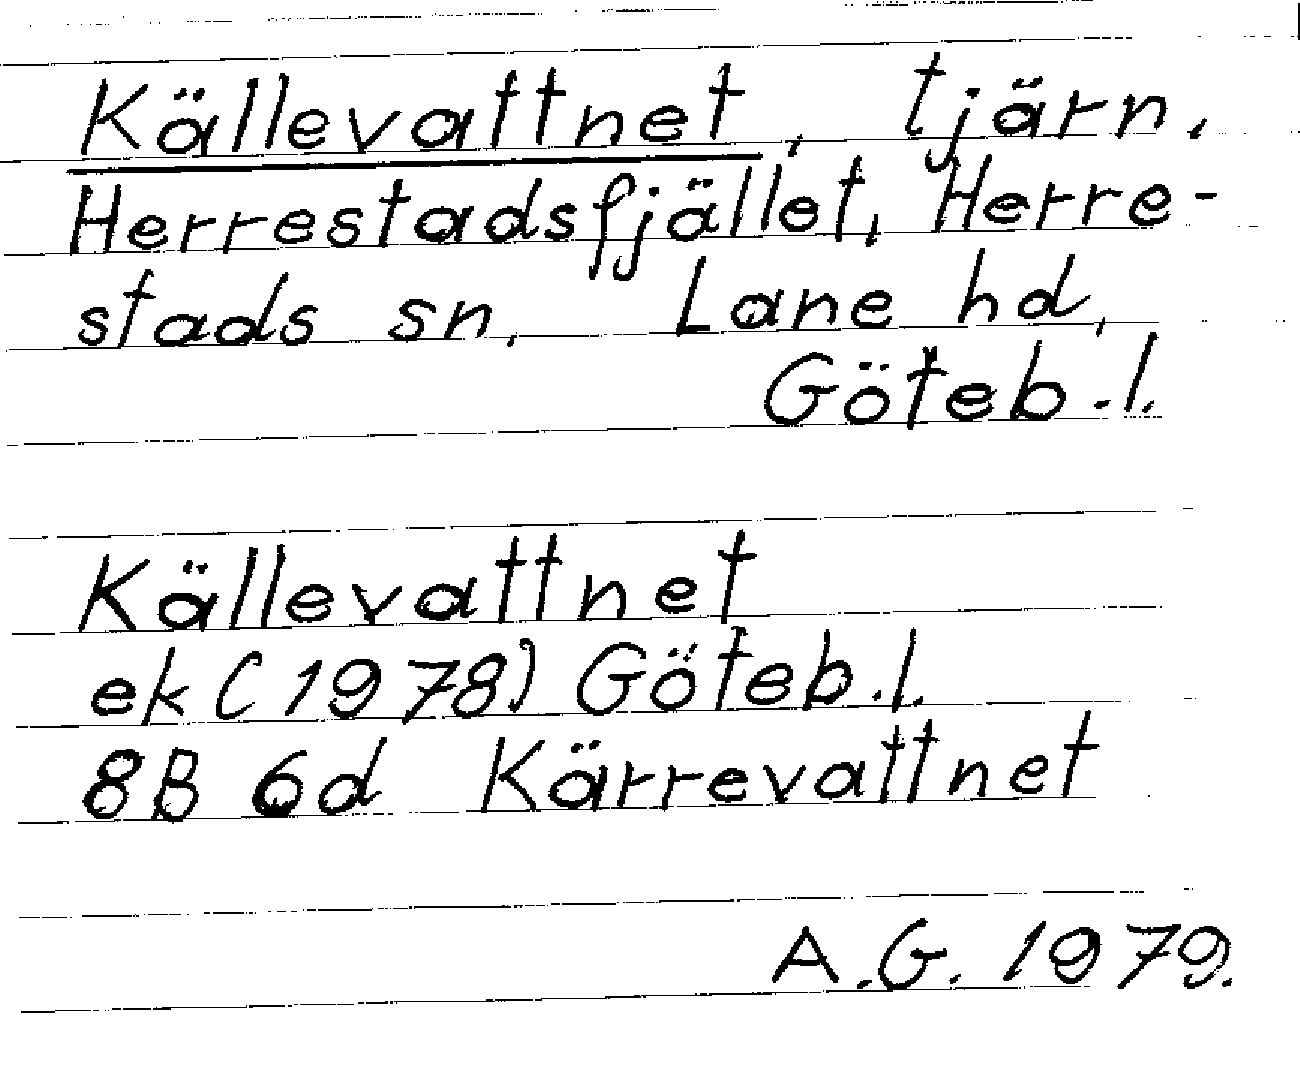 Källevattnet, tjärn,
Herrestadsfjället, Herre-
stads sn, Lane hd,
Göteb.l.
Källevattnet
ek (1978) Göteb.l.
8B 6d Kärrevattnet
A.G. 1979.